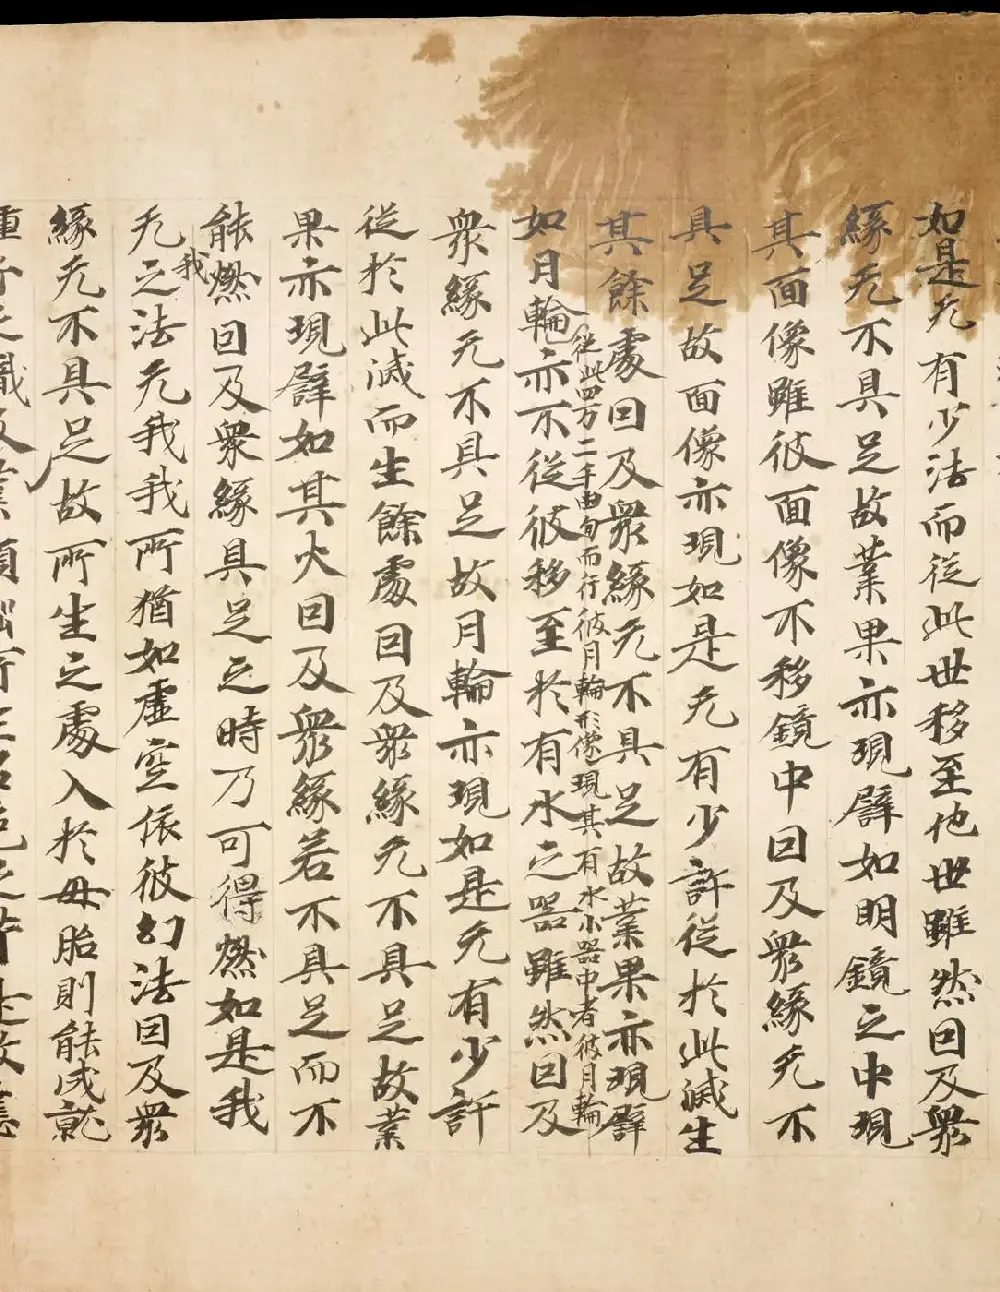 如是无有少法而從此世移至他世雖然因及衆
緣无不具足故業果亦現譬如明鏡之中現
其面像雖彼面像不移鏡中因及衆緣无不
具足故面像亦現如是无有少許從於此滅生
其餘處因及衆緣无不具足故業果亦現譬
從此四万二千由旬而行彼月輪形像現其有水小器中者彼月輪
如月輪亦不從彼移至於有水之器雖然因及
衆緣无不具足故月輪亦現如是无有少許
從於此滅而生餘處因及衆緣无不具足故業
果亦現譬如其火因及衆緣若不具足而不
能燃因及衆緣具足之時乃可得燃如是我
我
无之法无我我所猶如虛空依彼幻法因及衆
緣无不具足故所生之處入於母胎則能成就